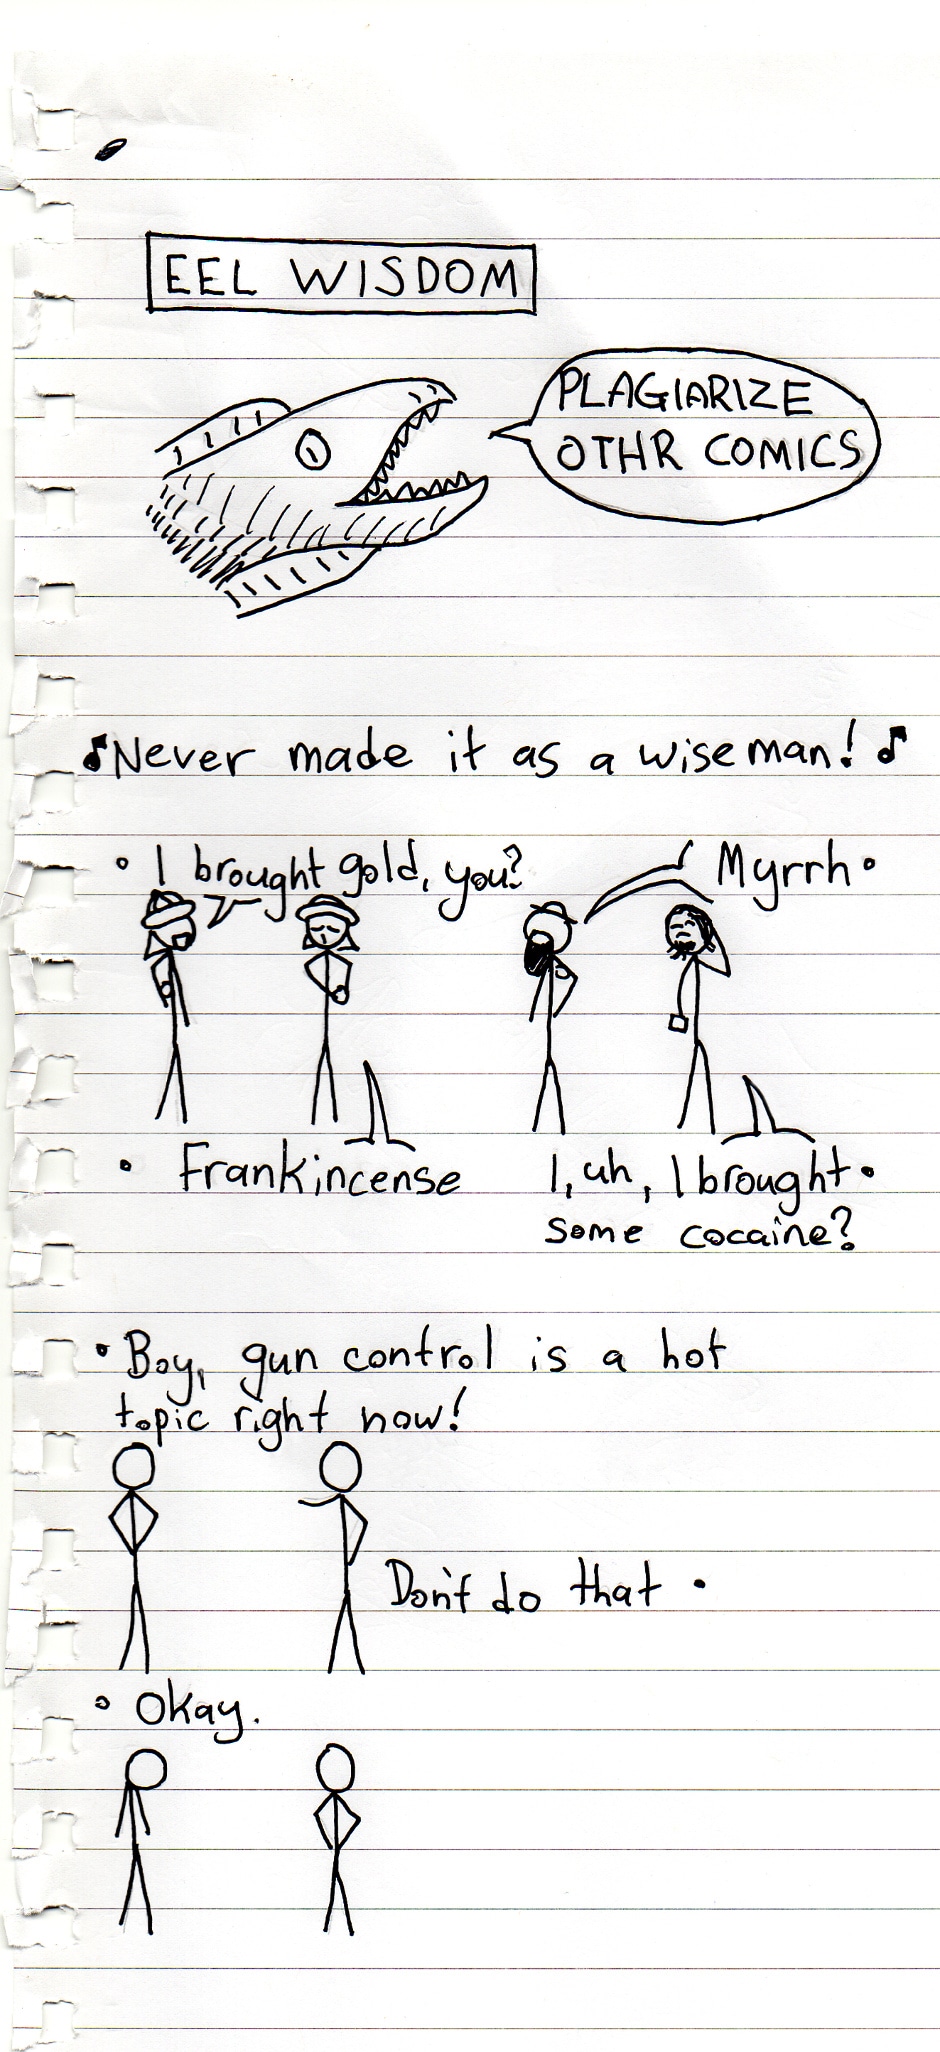 EEL WISDOM
PLAGIARIZE
OTHR COMICS
♪Never made it as a wise man!♪
• I brought gold, you?
Myrrh •
• Frankincense
I, uh, I brought •
some cocaine?
• Boy, gun control is a hot
topic right now!
Don't do that •
• Okay.